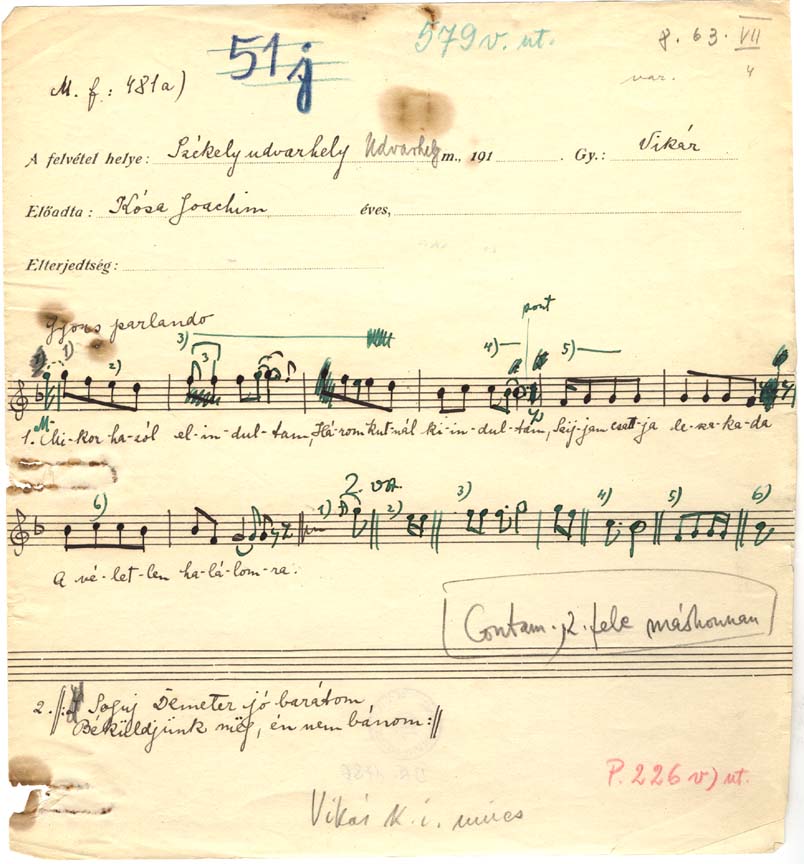 51j
579 v. ut.
8. 63. VII
4
var.
M. f: 481a)
A felvétel helye: Székelyudvarhely Udvarhely m., 191 . Gy.: Vikár
Előadta: Kósa Joachim éves,
Elterjedtség:
parlando
pont
1) 2) 3) 3 4) 5)
1. Mi-kor ha-sól el-in-dul-tam, Há-rom kut-nál ki-in-dul-tam, csatt-ja le-sza-ka-da
6) 2. va. 1) 2) 3) 4) 5) 6)
a vé-let-len ha-lá-lom-ra.
Contam. 2. fele máshonnan
2. ||: Demeter jó barátom
Béküldjünk még, én nem bánom :||
P. 226 v) ut.
Vikár k. i. nincs